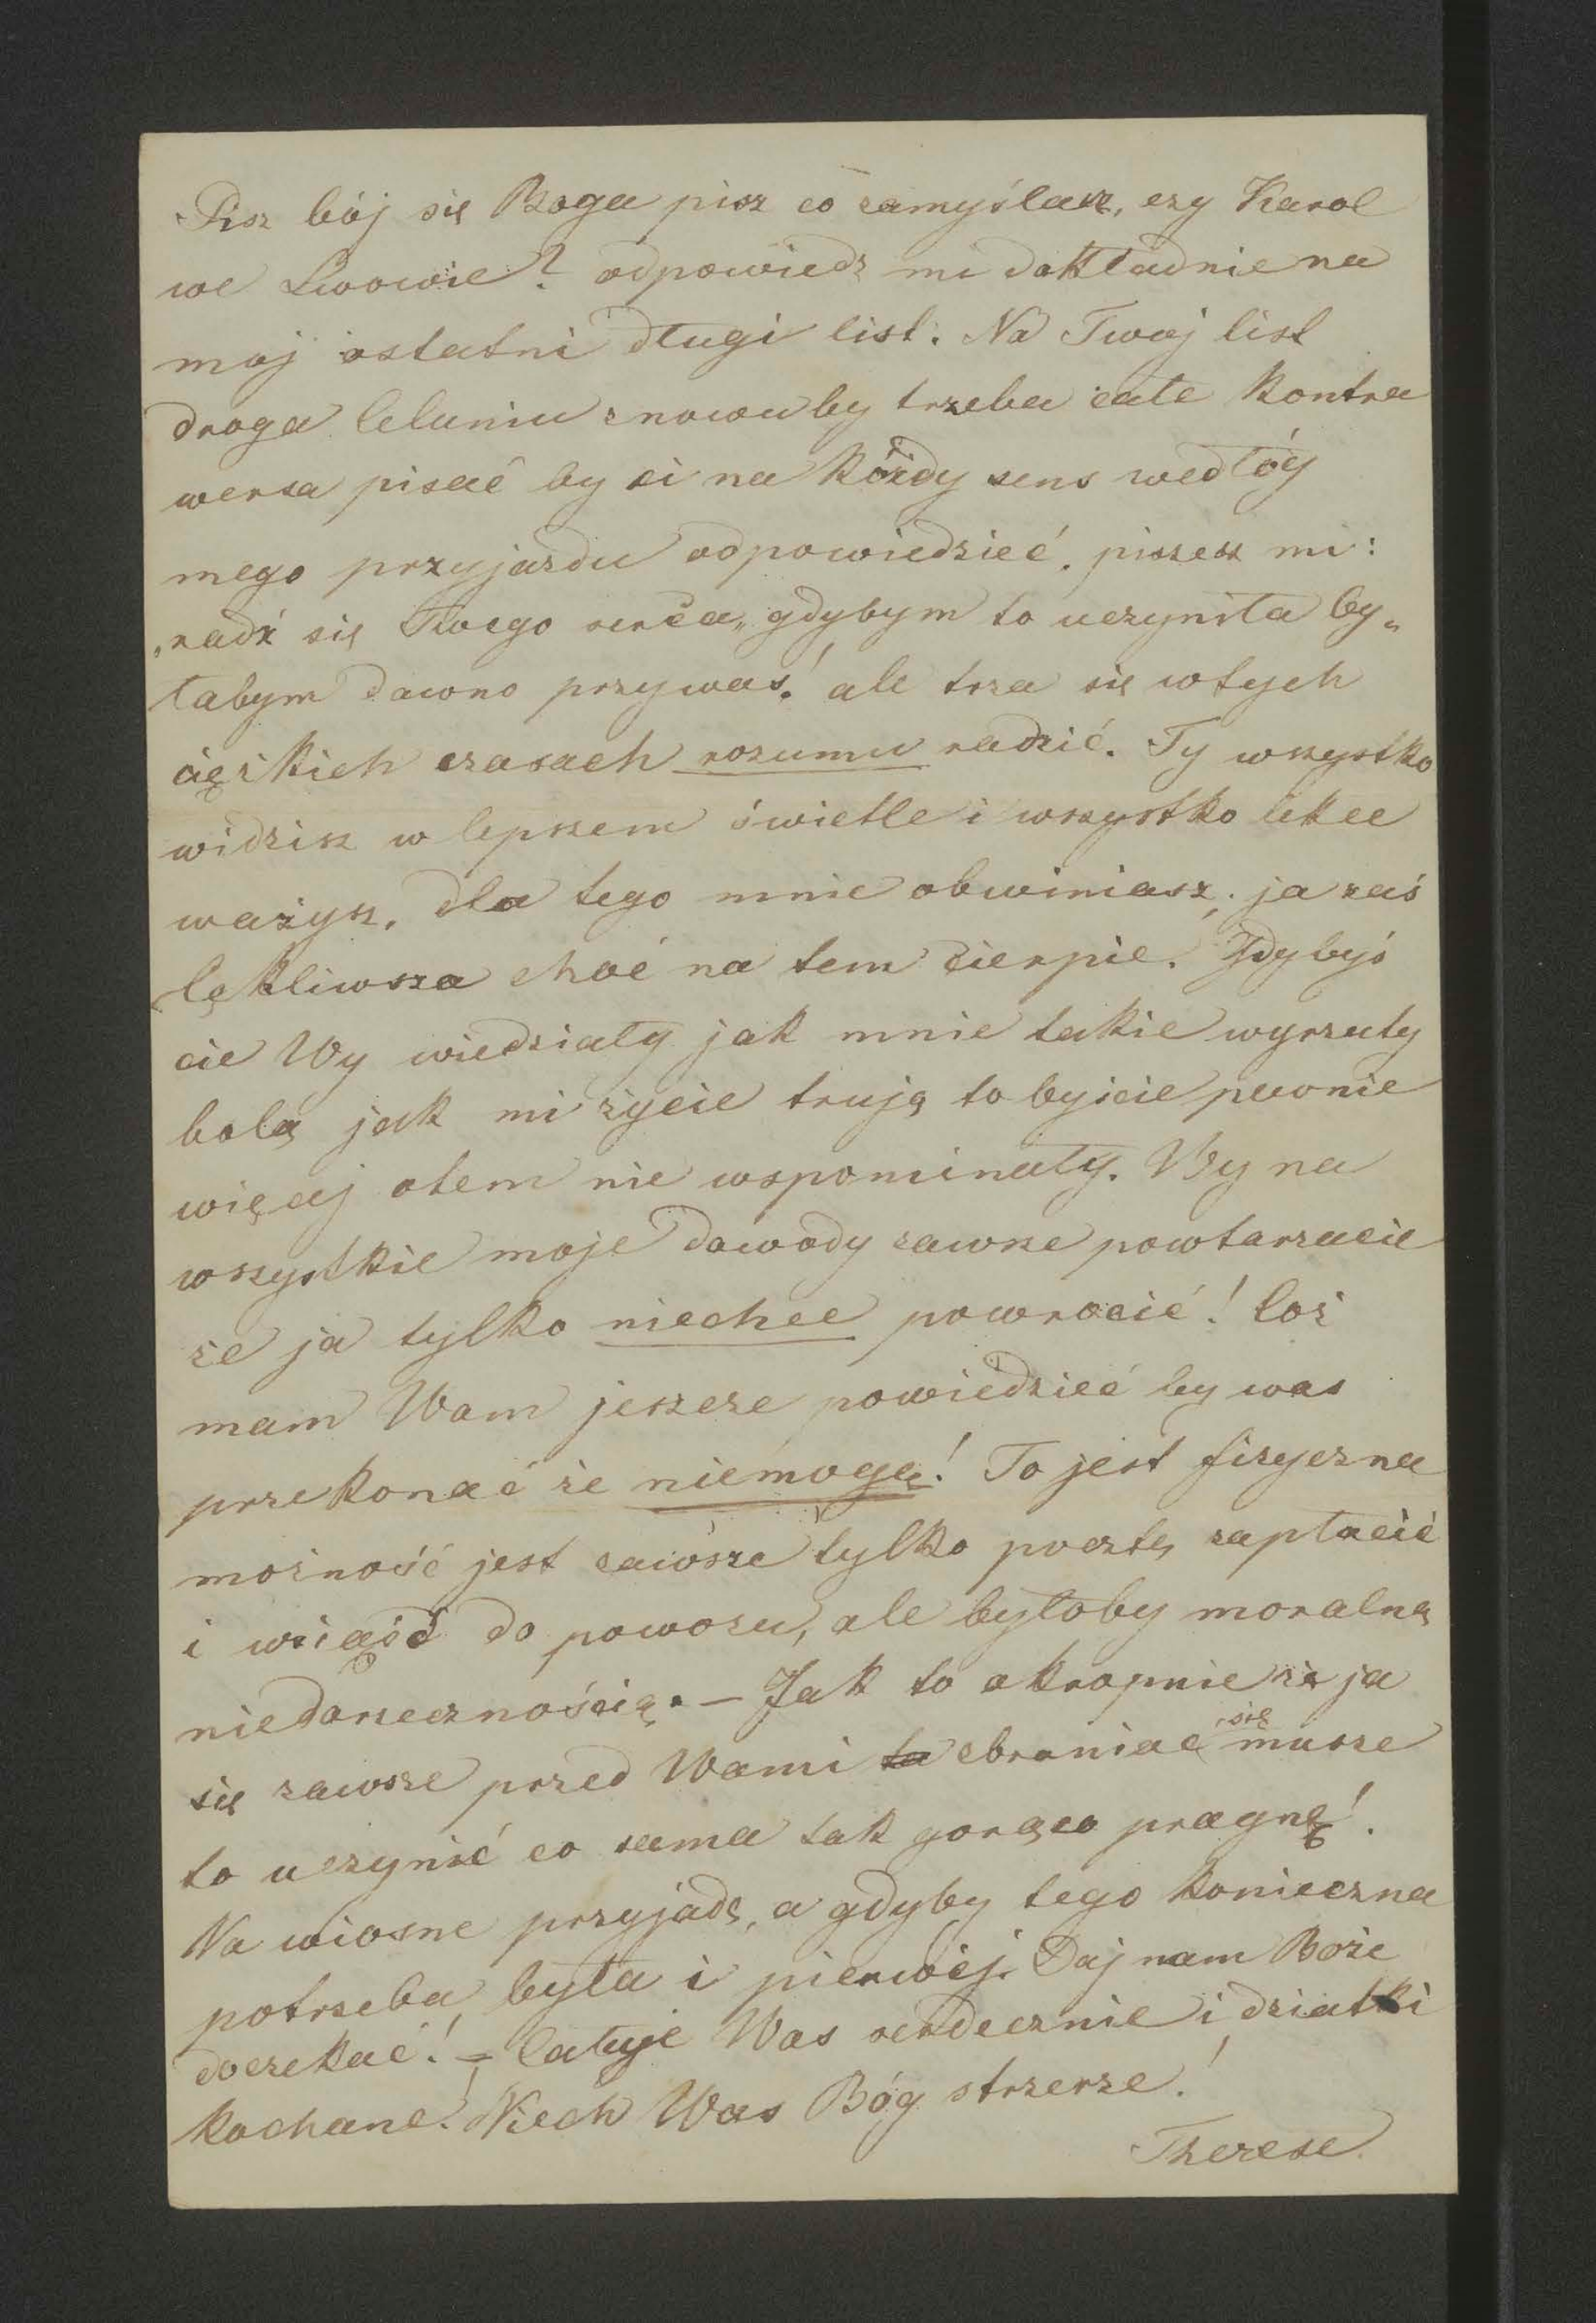 Pisz bój się Boga pisz co zamyślasz, czy Karol
we Lwowie? odpowiedz mi dokładnie na
moj ostatni długi list. Na Twoj list
droga Celuniu znowu by trzeba całe kontra
wersa pisać by ci na kózdy sens wedłóg
mego przyjazdu odpowiedzieć. piszesz mi:
„radź się Twego serca„ gdybym to uczyniła by„
łabym dawno przy was! ale trza się w tych
cięzkich czasach rozumu radzić. Ty wszystko
widzisz w lepszem świetle i wszystko lekce
ważysz, dla tego mnie obwiniasz, ja zaś
lękliwsza choć na tem cierpie. Gdybyś
cie Wy wiedziały jak mnie takie wyrzuty
bolą jak mi życie trują to byście pewnie
więcej otem nie wspominały. Wy na
wszystkie moje dowody zawsze powtarzacie
że ja tylko niechce powrocić! Coż
mam Wam jeszcze powiedzieć by was
przekonać że niemogę! To jest fizyczna
możność jest zawsze tylko pocztę zapłacić
i wsiąść do powozu, ale byłoby moralną
niedorzecznością. — Jak to okropnie że ja
się zawsze przed Wami ta obraniać się musze
to uczynić co sama tak gorąco pragnę!
Na wiosne przyjadę, a gdyby tego konieczna
potrzeba była i pierwéj. Daj nam Boże
doczekać! = Całuje Was serdecznie i dziatki
kochane! Niech Was Bóg strzerze!
Therese